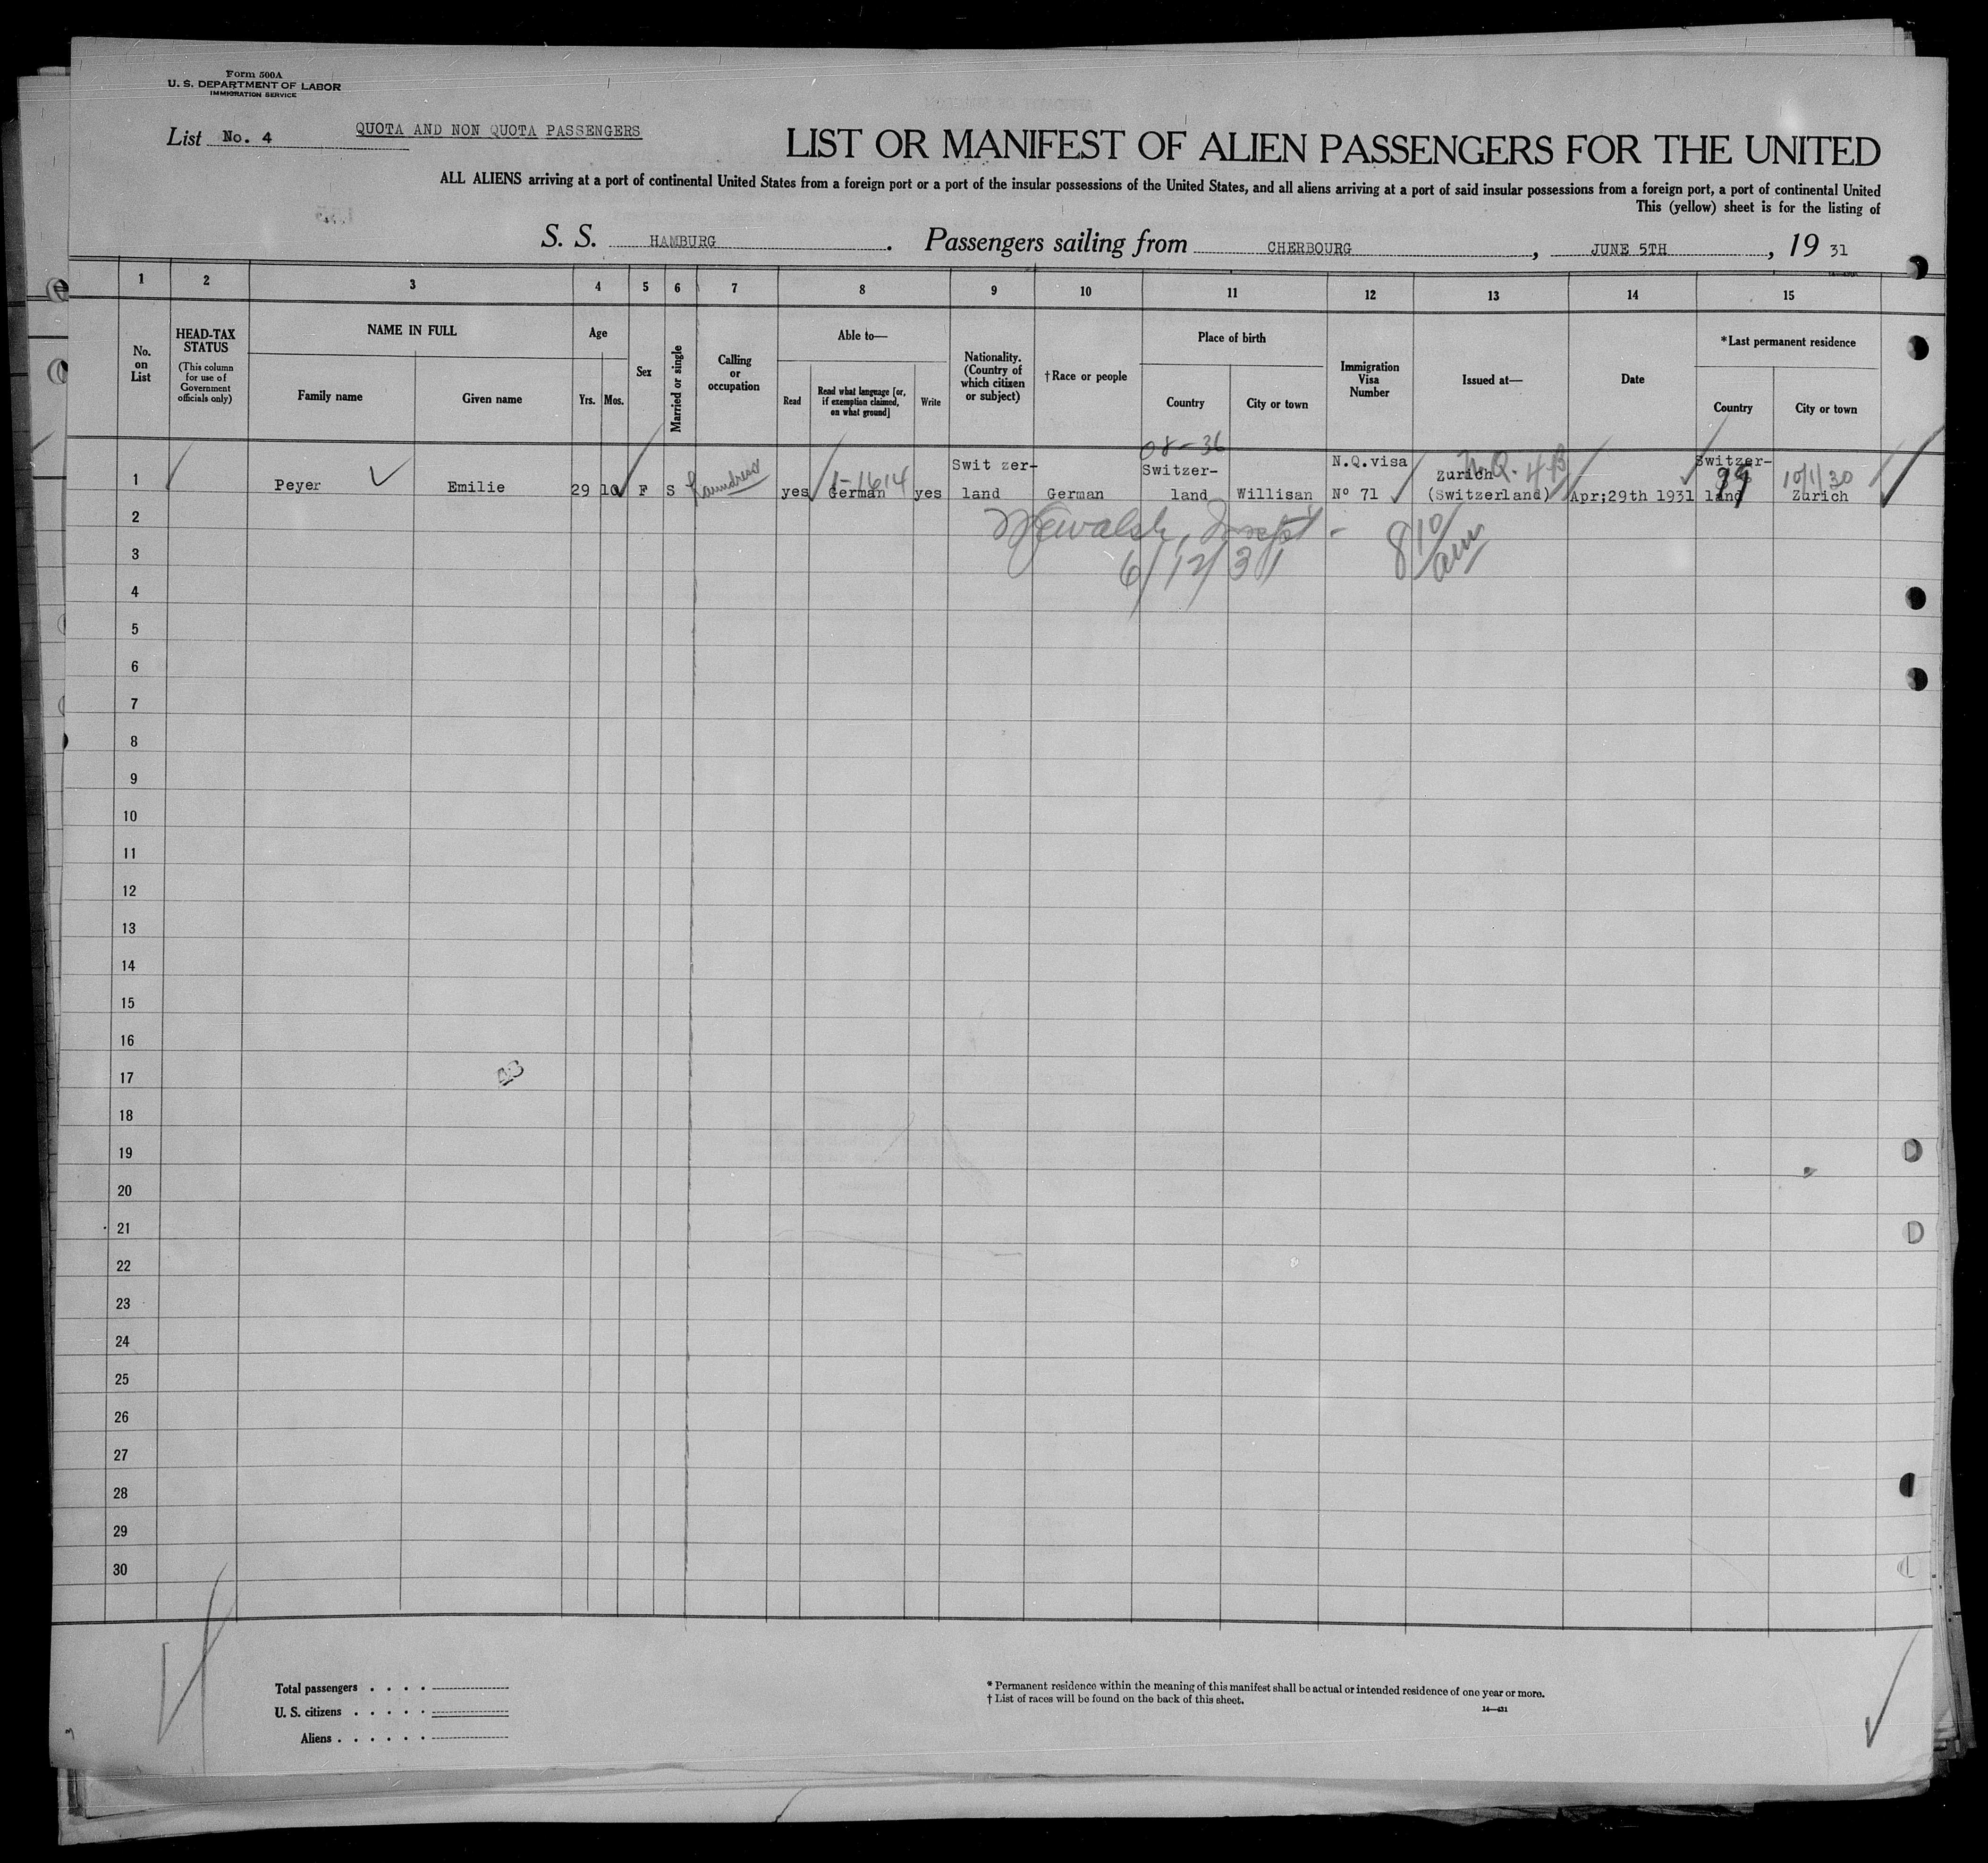 Form 500A
U. S. DEPARTMENT OF LABOR
IMMIGRATION SERVICE
List No. 4
QUOTA AND NON QUOTA PASSENGERS
LIST OR MANIFEST OF ALIEN PASSENGERS FOR THE UNITED
ALL ALIENS arriving at a port of continental United States from a foreign port or a port of the insular possessions of the United States, and all aliens arriving at a port of said insular possessions from a foreign port, a port of continental United
This (yellow) sheet is for the listing of
S. S. HAMBURG. Passengers sailing from CHERBOURG, JUNE 5TH, 19 31
1 2 3 4 5 6 7 8 9 10 11 12 13 14 15
No. on List
HEAD-TAX STATUS
(This column for use of Government officials only)
NAME IN FULL
Family name
Given name
Age
Yrs. Mos.
Sex
Married or single
Calling or occupation
Able to—
Read
Read what language [or, if exemption claimed, on what ground]
Write
Nationality. (Country of which citizen or subject)
†Race or people
Place of birth
Country
City or town
Immigration Visa Number
Issued at—
Date
*Last permanent residence
Country
City or town
08-36
1 Peyer Emilie 29 10 F S Laundress yes German 1-1614 yes Swit zer-land German Switzer-land Willisan N.Q.visa Nº 71 Zurich (Switzerland) N.Q. 4-B Apr;29th 1931 Switzer-land 99 Zurich 10/1/30
2
3
6/12/31
8 10/am
4
5
6
7
8
9
10
11
12
13
14
15
16
17
18
19
20
21
22
23
24
25
26
27
28
29
30
Total passengers . . . .
U. S. citizens . . . . .
Aliens . . . . . .
* Permanent residence within the meaning of this manifest shall be actual or intended residence of one year or more.
† List of races will be found on the back of this sheet.
14—431